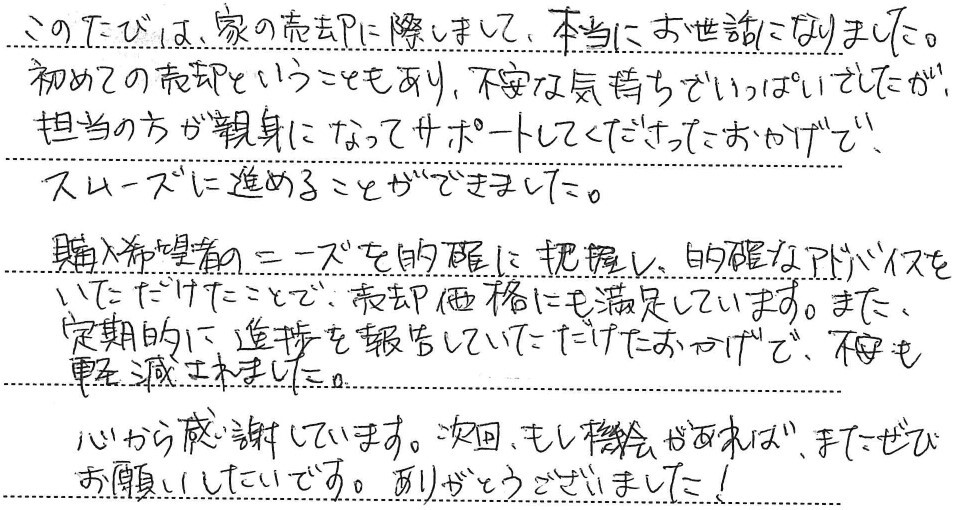 このたびは、家の売却に際しまして、本当にお世話になりました。
初めての売却ということもあり、不安な気持ちでいっぱいでしたが、
担当の方が親身になってサポートしてくださったおかげで、
スムーズに進めることができました。
購入希望者のニーズを的確に把握し、的確なアドバイスを
いただけたことで、売却価格にも満足しています。また、
定期的に進捗を報告していただけたおかげで、不安も
軽減されました。
心から感謝しています。次回、もし機会があれば、またぜひ
お願いしたいです。ありがとうございました！